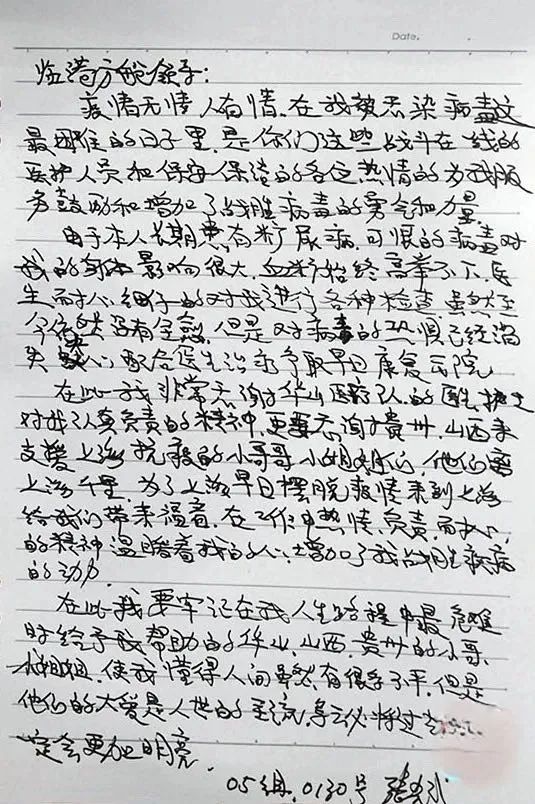 Date.
临港方舱领导：
疫情无情人有情，在我被感染病毒这
最困难的日子里，是你们这些战斗在一线的
医护人员和保安保洁的各位热情的为我服
务鼓励和增加了战胜病毒的勇气和力量。
由于本人长期患有糖尿病，可恨的病毒对
我的身体影响很大，血糖始终高举不下，医
生耐心细仔的对我进行各种检查，虽然至
今依然没有全愈，但是对病毒的恐惧已经消
失 心配合医生治疗争取早日康复出院
在此我非常感谢华山医疗队的医生护士
对我认真负责的精神，更要感谢贵州，山西来
支援上海抗疫的小哥哥小姐姐们，他们离
上海千里，为了上海早日摆脱疫情来到上海
给我们带来福音，在工作中热情、负责、耐心，
的精神温暖着我的心，增加了我战胜疾病
的动力。
在此我要牢记在我人生路程中最危难
时给予我帮助的华山，山西，贵州的小哥，
小姐姐，使我懂得人间虽然有很多不平，但是
他们的大爱是人世的主流，将过去
一定会更加明亮。
05组，0130号